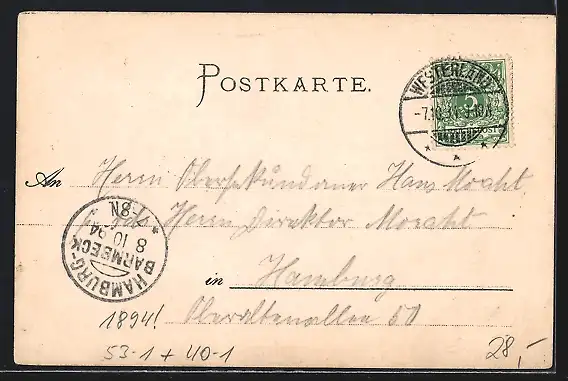 POSTKARTE.
WESTERLAND
5
REICHSPOST
An Herrn Obersekundaner Hans Mocht
p. adr. Herrn Direktor Mocht
HAMBURG-BARMBECK
8 10 94
7-8N
in Hamburg
Oberaltenallee 50
1894!
53-1 + 40-1
28,-